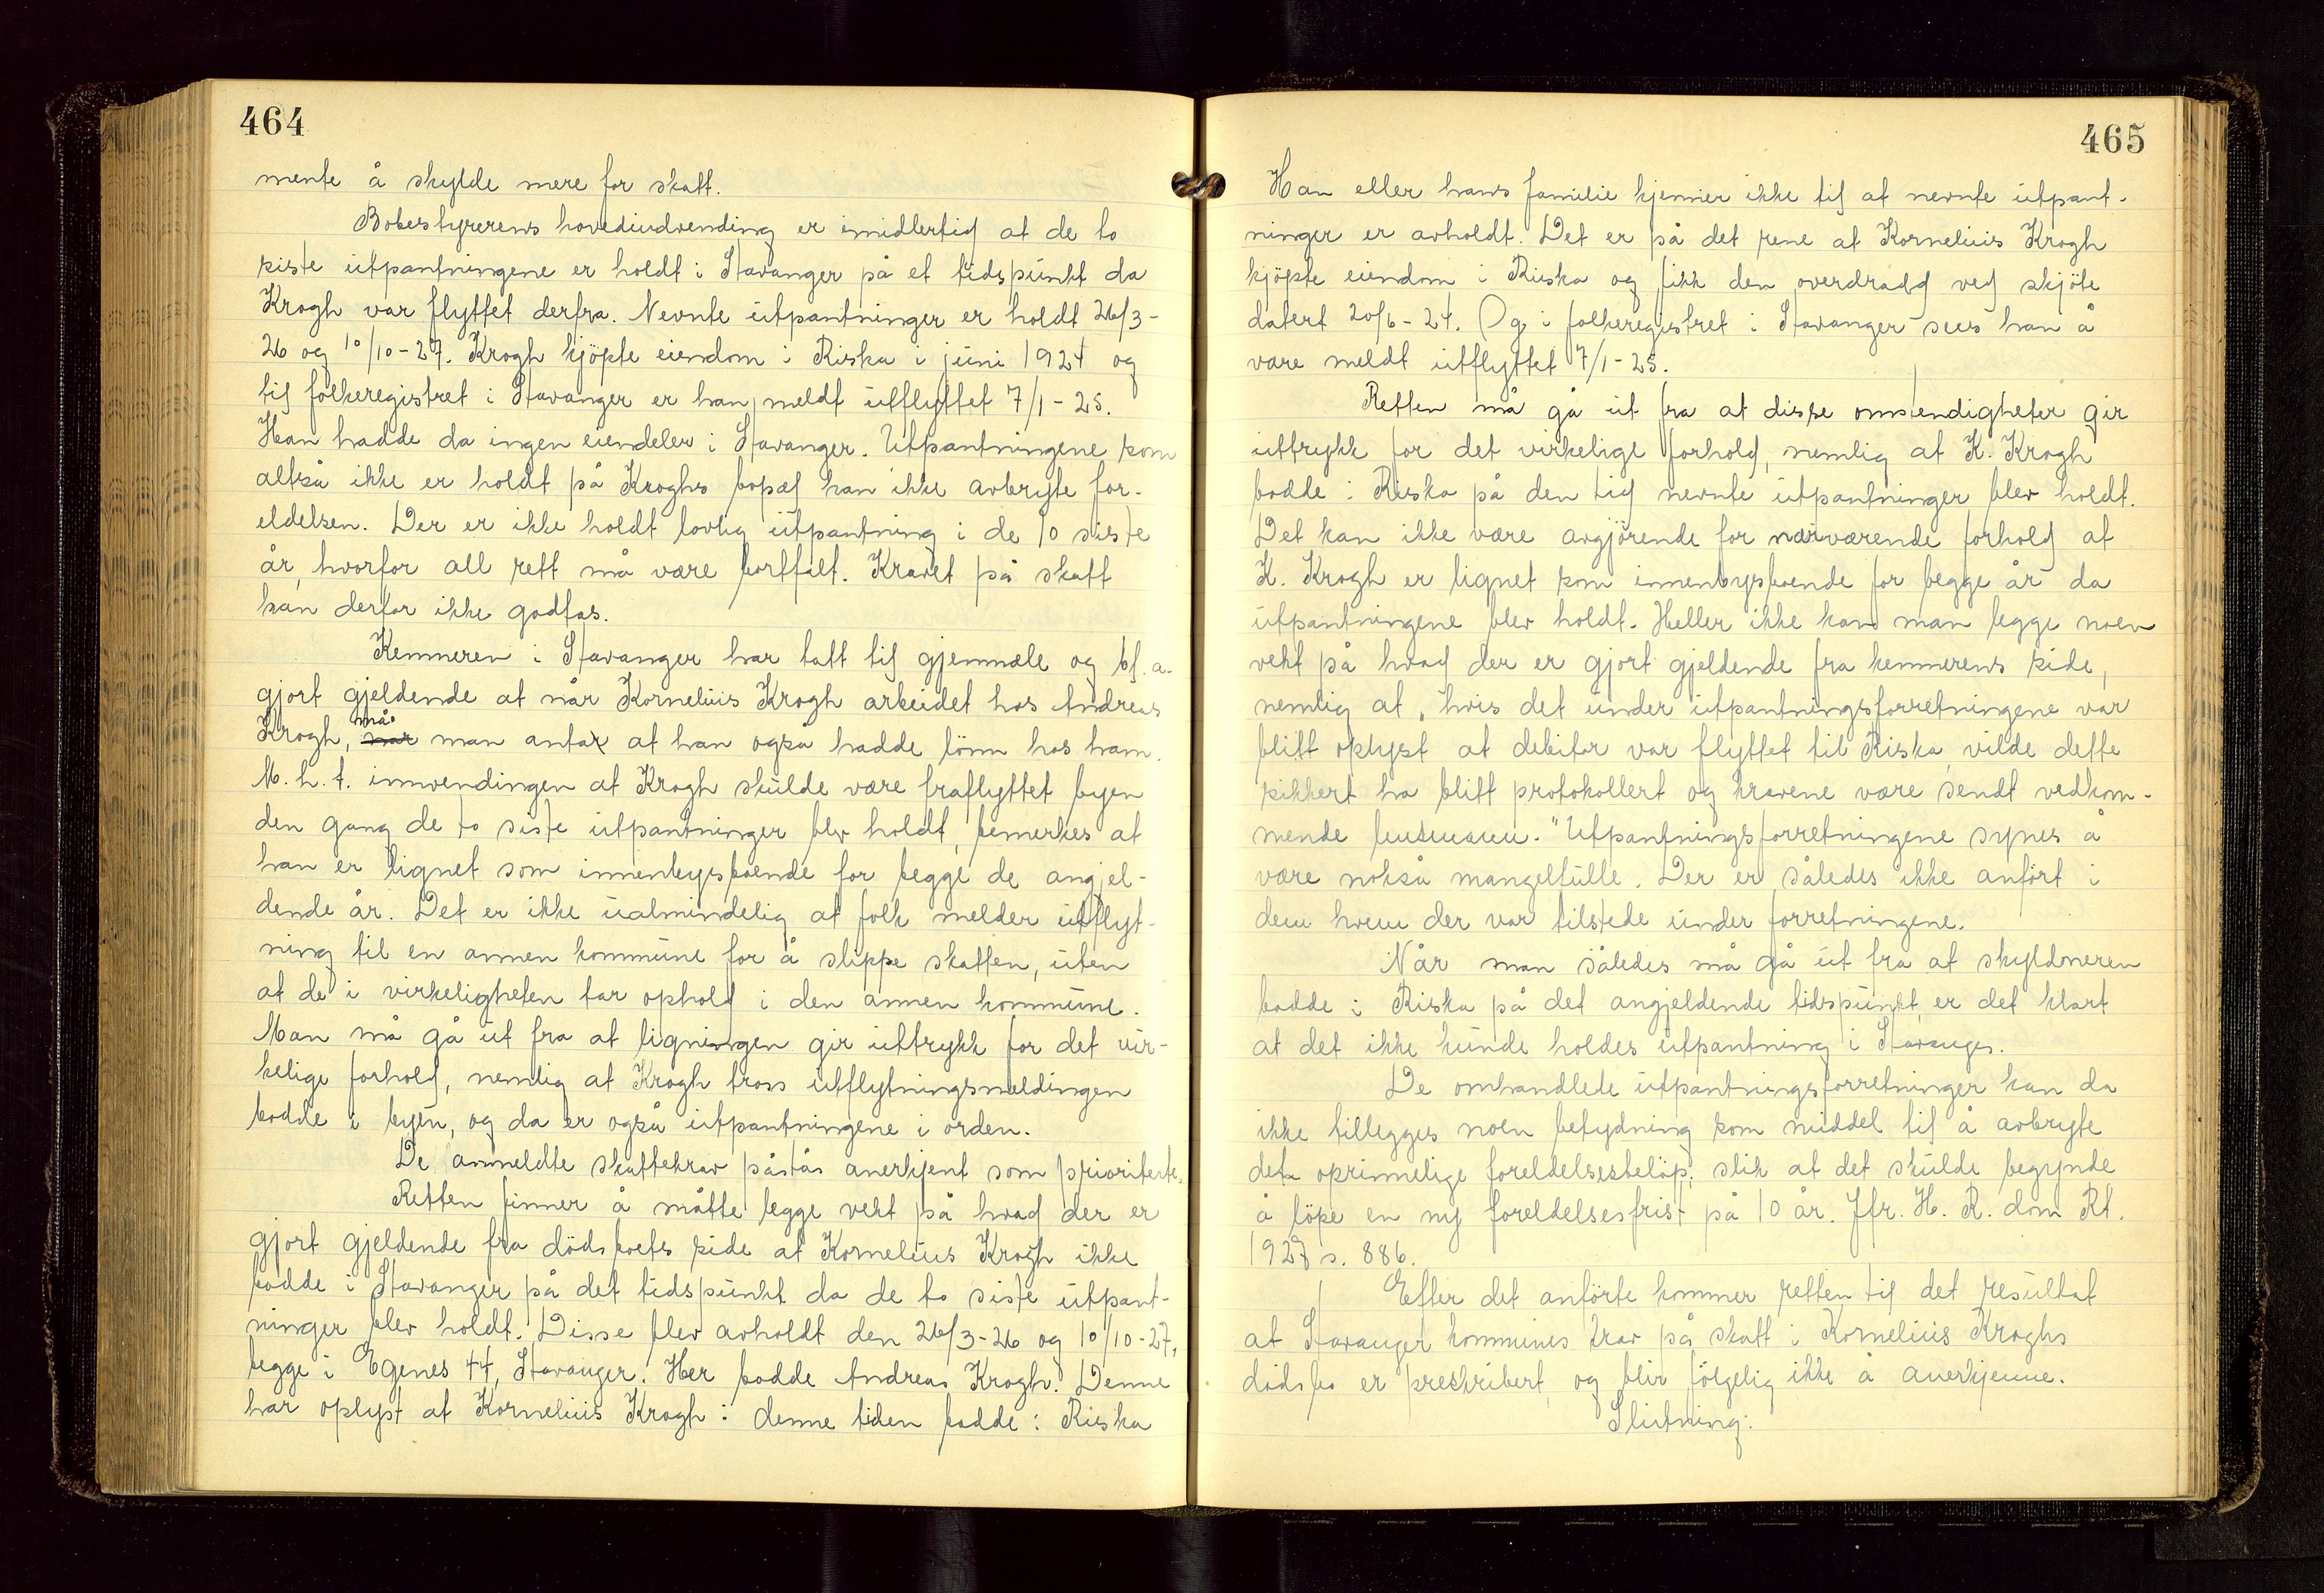 464
mente å skylde mere for skatt.
Bobestyrerens hovedindvending er imidlertid at de to
siste utpantningene er holdt i Stavanger på et tidspunkt da
Krogh var flyttet derfra. Nevnte utpantninger er holdt 26/3-
26 og 10/10-27. Krogh kjöpte eiendom i Riska i juni 1924 og
til folkeregistret i Stavanger er han meldt utflyttet 7/1-25.
Han hadde da ingen eiendeler i Stavanger. Utpantningene som
altså ikke er holdt på Kroghs bopæl kan ikke avbryte for-
eldelsen. Der er ikke holdt lovlig utpantning i de 10 siste
år, hvorfor all rett må være bortfalt. Kravet på skatt
kan derfor ikke godtas.
Kemneren i Stavanger har tatt til gjenmæle og bl.a.
gjort gjeldende at når Kornelius Krogh arbeidet hos Andreas
Krogh, må man anta at han også hadde lönn hos ham.
M.h.t. innvendingen at Krogh skulde være fraflyttet byen
den gang de to siste utpantninger blev holdt, bemerkes at
han er lignet som innenbysboende for begge de angjel-
dende år. Det er ikke ualmindelig at folk melder utflyt-
ning til en annen kommune for å slippe skatten, uten
at de i virkeligheten tar ophold i den annen kommune.
Man må gå ut fra at ligningen gir uttrykk for det vir-
kelige forhold, nemlig at Krogh tross utflytningsmeldingen
bodde i byen, og da er også utpantningene i orden.
De anmeldte skattekrav påstås anerkjent som prioriterte.
Retten finner å måtte legge vekt på hvad der er
gjort gjeldende fra dödsboets side at Kornelius Krogh ikke
bodde i Stavanger på det tidspunkt da de to siste utpant-
ninger blev holdt. Disse blev avholdt den 26/3-26 og 10/10-27,
begge i Egenes 44, Stavanger. Her bodde Andreas Krogh. Denne
har oplyst at Kornelius Krogh i denne tiden bodde i Riska
465
Han eller hans familie kjenner ikke til at nevnte utpant-
ninger er avholdt. Det er på det rene at Kornelius Krogh
kjöpte eiendom i Riska og fikk den overdradd ved skjöte
datert 20/6-24. Og i folkeregistret i Stavanger sees han å
være meldt utflyttet 7/1-25.
Retten må gå ut fra at disse omstendigheter gir
uttrykk for det virkelige forhold, nemlig at K. Krogh
bodde i Riska på den tid nevnte utpantninger blev holdt.
Det kan ikke være avgjörende for nærværende forhold at
K. Krogh er lignet som innenbysboende for begge år da
utpantningene blev holdt. Heller ikke kan man legge noen
vekt på hvad der er gjort gjeldende fra kemnerens side,
nemlig at „hvis det under utpantningsforretningene var
blitt oplyst at debitor var flyttet til Riska, vilde dette
sikkert ha blitt protokollert og kravene være sendt vedkom-
mende lensmann." Utpantningsforretningene synes å
være nokså mangelfulle. Der er således ikke anført i
dem hvem der var tilstede under forretningene.
Når man således må gå ut fra at skyldneren
bodde i Riska på det angjeldende tidspunkt, er det klart
at det ikke kunde holdes utpantning i Stavanger.
De omhandlede utpantningsforretninger kan da
ikke tillegges noen betydning som middel til å avbryte
det oprinnelige foreldelsesbelöp, slik at det skulde begynde
å löpe en ny foreldelsesfrist på 10 år. Jfr. H. R. dom Rt.
1927 s. 886.
Efter det anförte kommer retten til det resultat
at Stavanger kommunes krav på skatt i Kornelius Kroghs
dödsbo er preskribert, og blir fölgelig ikke å anerkjenne.
Slutning: